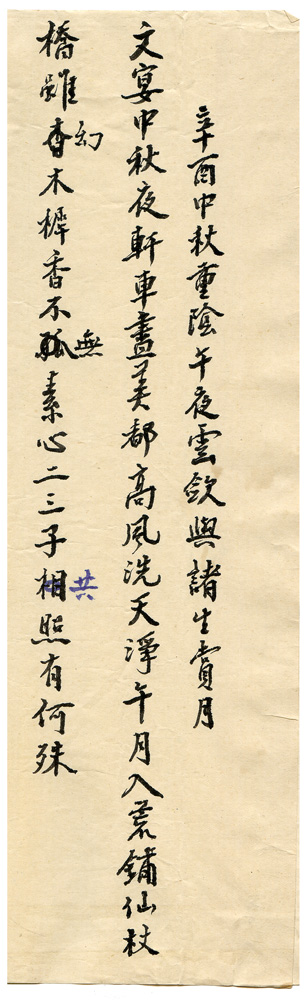 辛酉中秋重陰午夜雲歛與諸生賞月
文宴中秋夜軒車盡美都高風洗天淨午月入荒鋪仙杖
橋雖杳幻木樨香不孤無素心二三子相共照有何殊